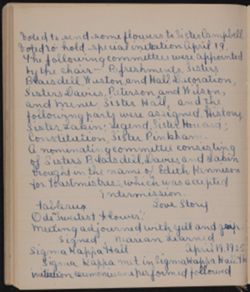 Voted to send some flowers to Sister Campbell
Voted to hold special initiation April 19.
The following committees were appointed
by the chair - Refreshments, Sisters
Blaisdell Weston, and Hall; Decoration,
Sisters Davis, Peterson, and Wilson,
and menu Sister Hall, and the
following party were assigned: History,
Sister Eaken; Legend, Sister Howard;
Constitution, Sister Pinkham.
A nominating committee consisting
of Sisters Blaisdell, Davies and Eakin
brought in the name of Edith
for Toastmistress, which was accepted
Intermission.
Love Story
Ode "Sweetest Flower."
Meeting adjourned with yell and grip.
Signed Marian Learned
Sigma Kappa Hall April 19, 
Sigma Kappa met in Sigma Kappa Hall. The
initiation ceremonies performed followed